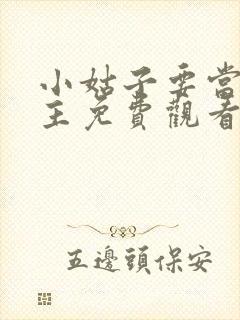 小姑子要當
主免費觀看
五邊頭保安